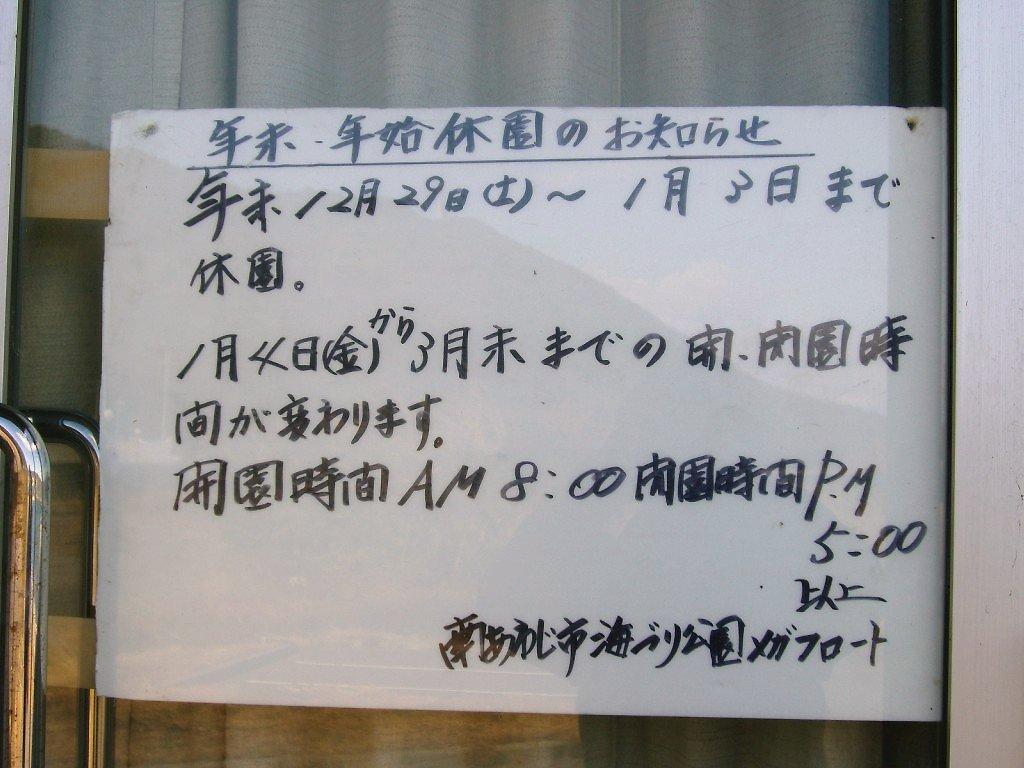 年末・年始休園のお知らせ
年末12月29日(土)～1月3日まで
休園。
1月4日(金)から3月末までの開、閉園時
間が変わります。
開園時間AM8:00閉園時間P.M
5:00
以上
南あわじ市海づり公園メガフロート